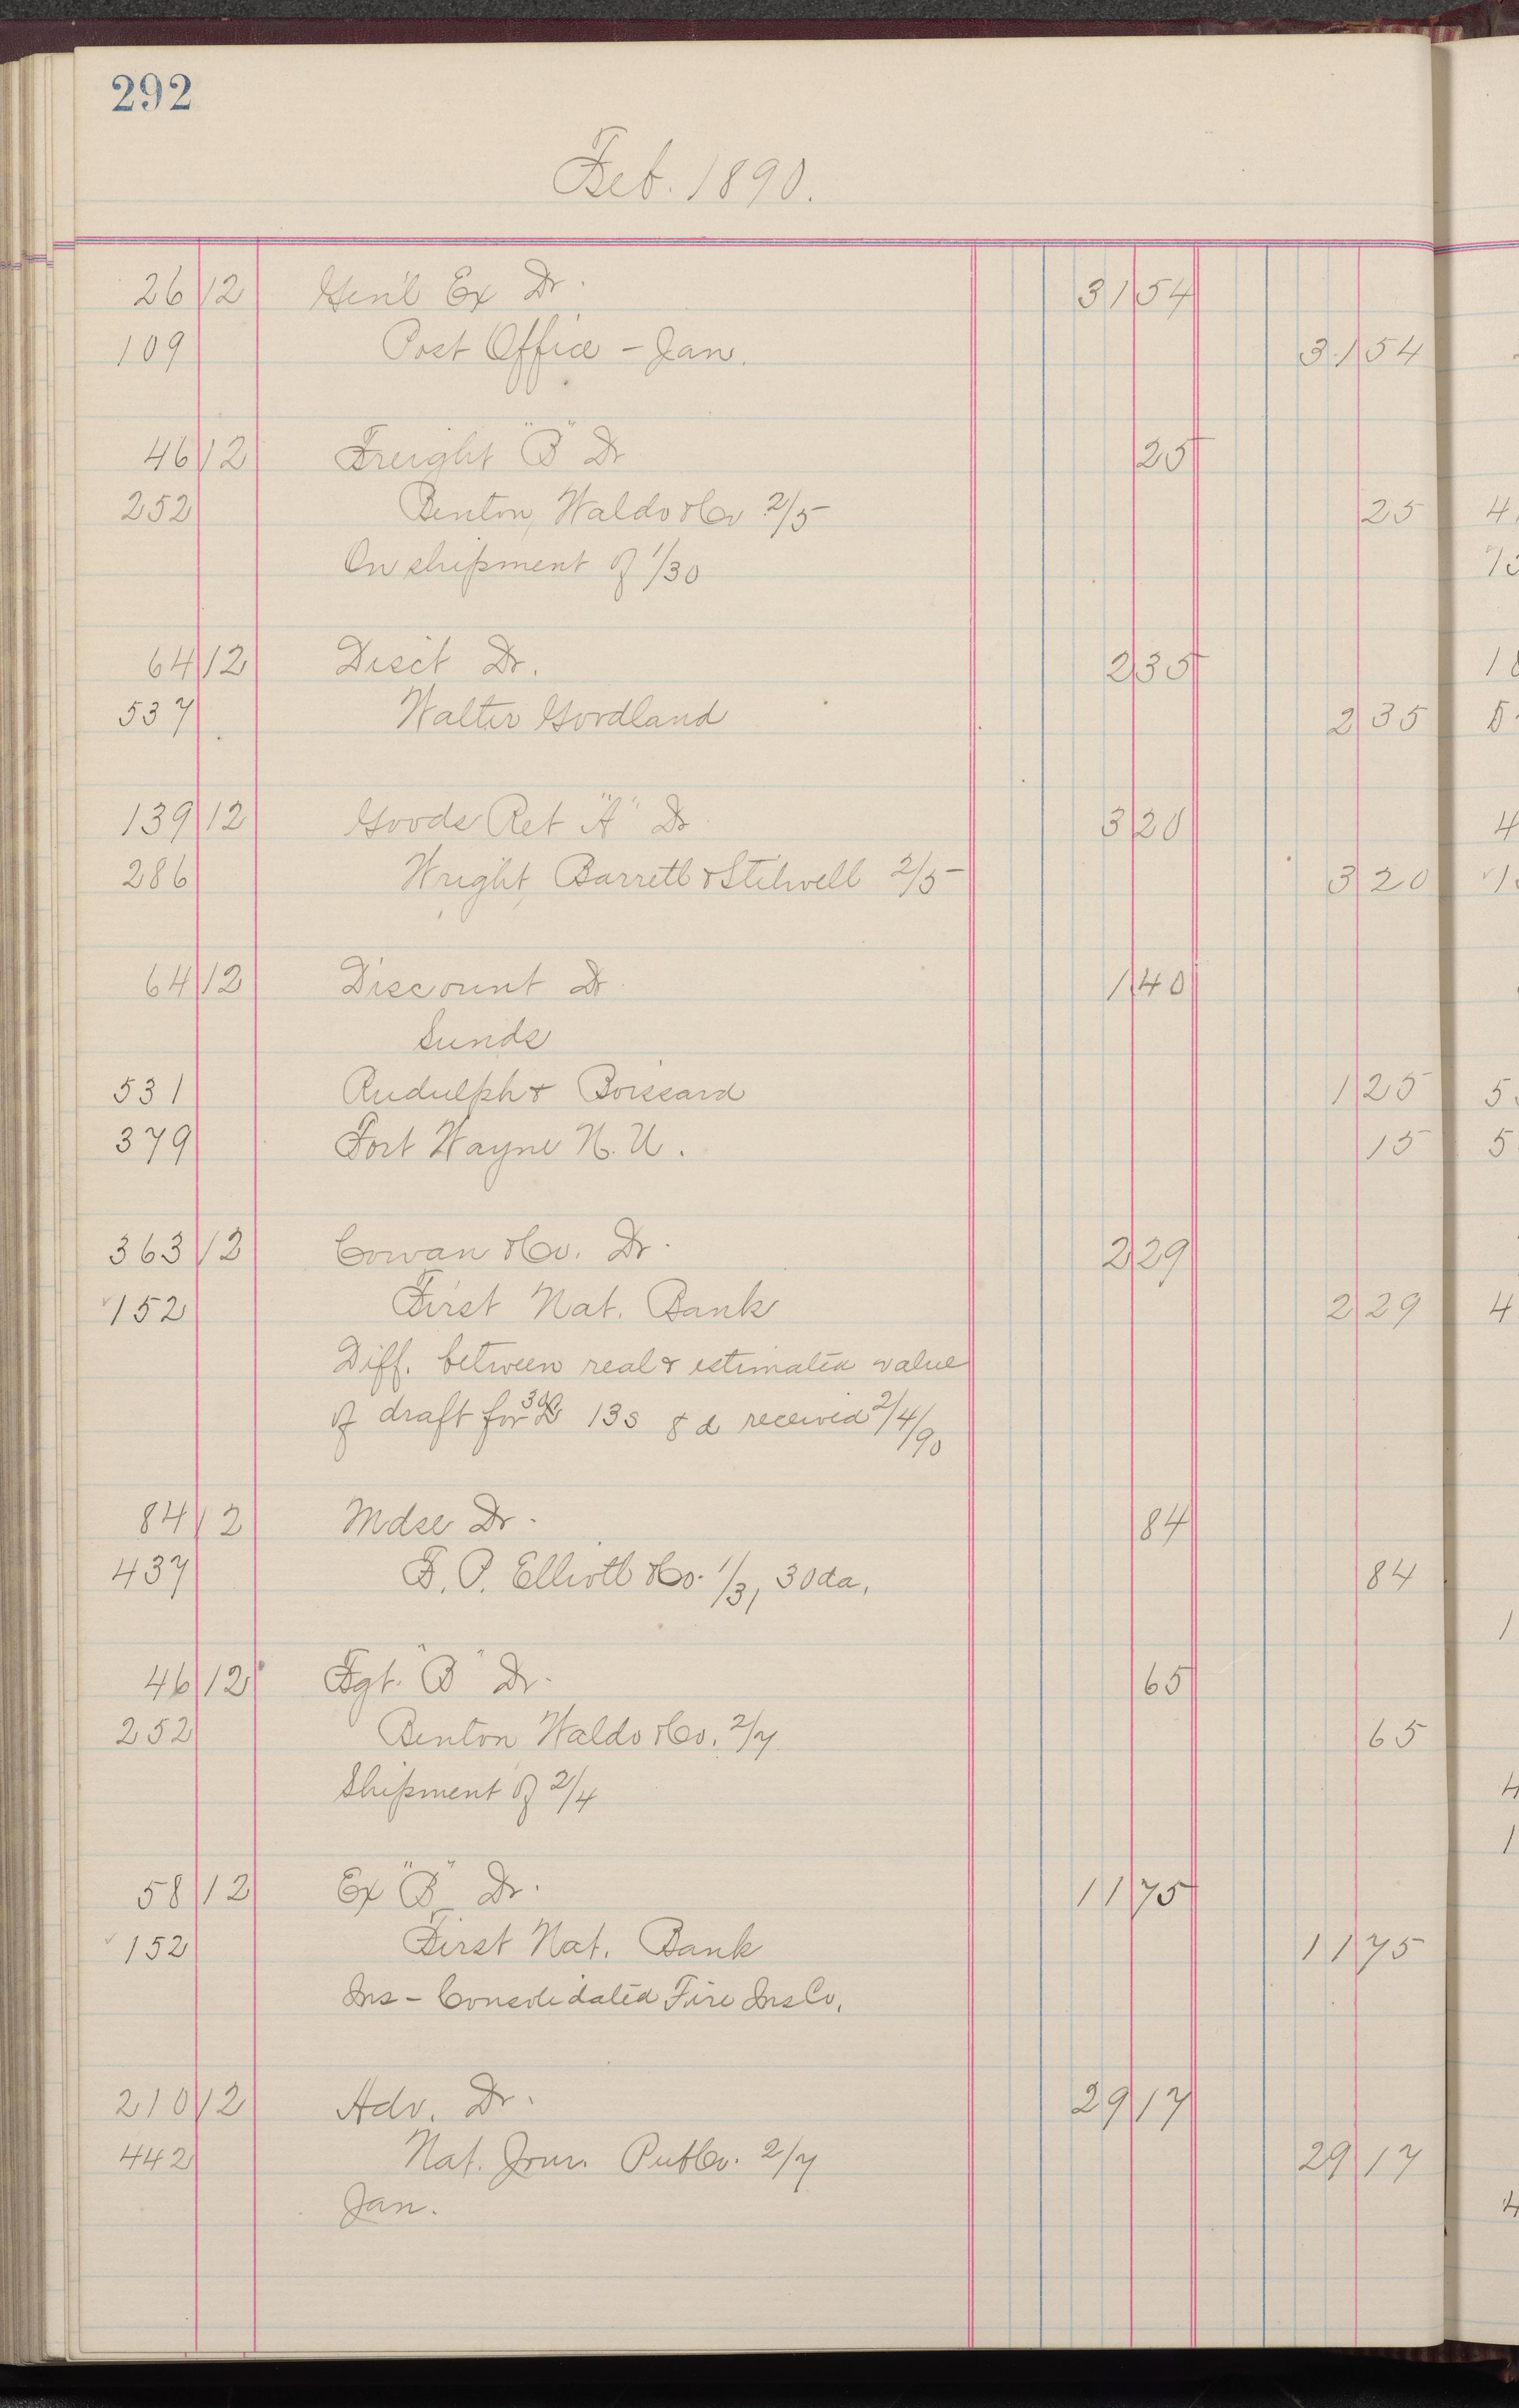 292
Feb. 1890.
26 12 Gen'l Ex Dr. 31 54
109 Post Office - Jan. 31 54
46 12 Freight "B" Dr 25
252 Benton, Waldo & Co 2/5 25
On shipment of 1/30
64 12 Disct Dr. 2 35
537 Walter Gordland 2 35
139 12 Goods Ret "A" Dr 3 20
286 Wright, Barrett & Stilwell 2/5 3 20
64 12 Discount Dr 1 40
Sunds
531 Rudulph & Boissard 1 25
379 Fort Wayne N. U. 15
363 12 Cowan & Co. Dr. 2 29
152 First Nat. Bank 2 29
Diff. between real & estimated value
of draft for 13s 8d received 2/4/90
84 12 Mdse Dr. 84
437 F. P. Elliott & Co. 1/3, 30da, 84
46 12 Fgt. "B" Dr. 65
252 Benton Waldo & Co. 2/7 65
Shipment of 2/4
58 12 Ex "B" Dr. 11 75
152 First Nat. Bank 11 75
Ins - Consolidated Fire Ins Co.
210 12 Adv. Dr. 29 17
442 Nat. Jour. Pub Co. 2/7 29 17
Jan.